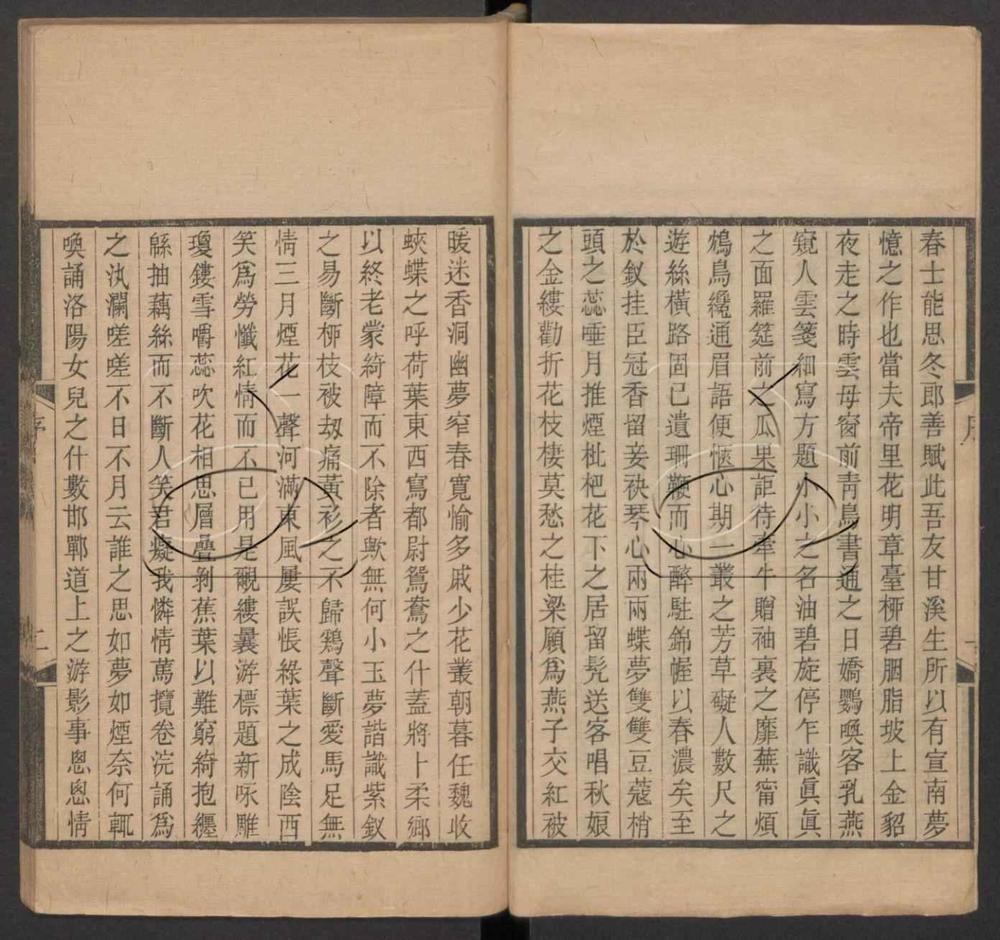 春士能思冬郎善賦此吾友甘溪生所以有宣南夢
憶之作也當夫帝里花明章臺栁碧胭脂坡上金貂
夜走之時雲母窗前靑鳥書通之日嬌鸚喚客乳燕
窺人雲箋細寫方題小小之名油碧旋停乍識眞眞
之面羅筵前之瓜果詎待牽牛贈袖裏之蘼蕪甯煩
鴆鳥纔通眉語便愜心期一叢之芳草礙人數尺之
遊絲橫路固已遺珊鞭而心醉駐錦幄以春濃矣至
於釵挂臣冠香留妾袂琴心兩兩蝶夢雙雙豆蔻梢
頭之蕊唾月推煙枇杷花下之居留髠送客唱秋娘
之金縷勸折花枝棲莫愁之桂梁願爲燕子交紅被
序
暖迷香洞幽夢窄春寬愉多戚少花叢朝暮任魏收
蛺蝶之呼荷葉東西寫都尉鴛鴦之什蓋將卜柔鄉
以終老蒙綺障而不除者歟無何小玉夢諧讖紫釵
之易斷柳枝被刼痛黃衫之不歸鷄聲斷愛馬足無
情三月煙花一聲河滿東風屢誤悵綠葉之成陰西
笑爲勞懺紅情而不已用是覼縷曩游標題新咏雕
瓊鏤雪嚼蕊吹花相思層疊剝蕉葉以難窮綺抱纏
緜抽藕絲而不斷人笑君癡我憐情篤攬卷浣誦爲
之汍瀾嗟嗟不日不月云誰之思如夢如煙奈何輒
喚誦洛陽女兒之什數邯鄲道上之游影事悤悤情
序
二